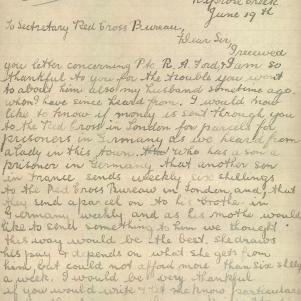 Creek
June 19th
To Secretary Red Cross Bureau,
Dear Sir,
I received
you letter concerning Pte R. A. Ford, I am so
thankful to you for the trouble you went
to about him also my husband sometime ago.
whom I have since heard from. I would now
like to know if money is sent through you
to the Red Cross in London for parcels for
prisoners in Germany as we heard from
a lady in this town. who has a son a
prisoner in Germany that another son
in France sends weekly six shillings
to the Red Cross Bureau in London, and that
they send a parcel on to his brothe in
Germany weekly and as his mothe would
like to send something to him we thought
this way would be the best, she draws
his pay & depends on what she gets from
him, but could not afford more than six shillg
a week. I would be very thankful
if you would write & let me know particulars